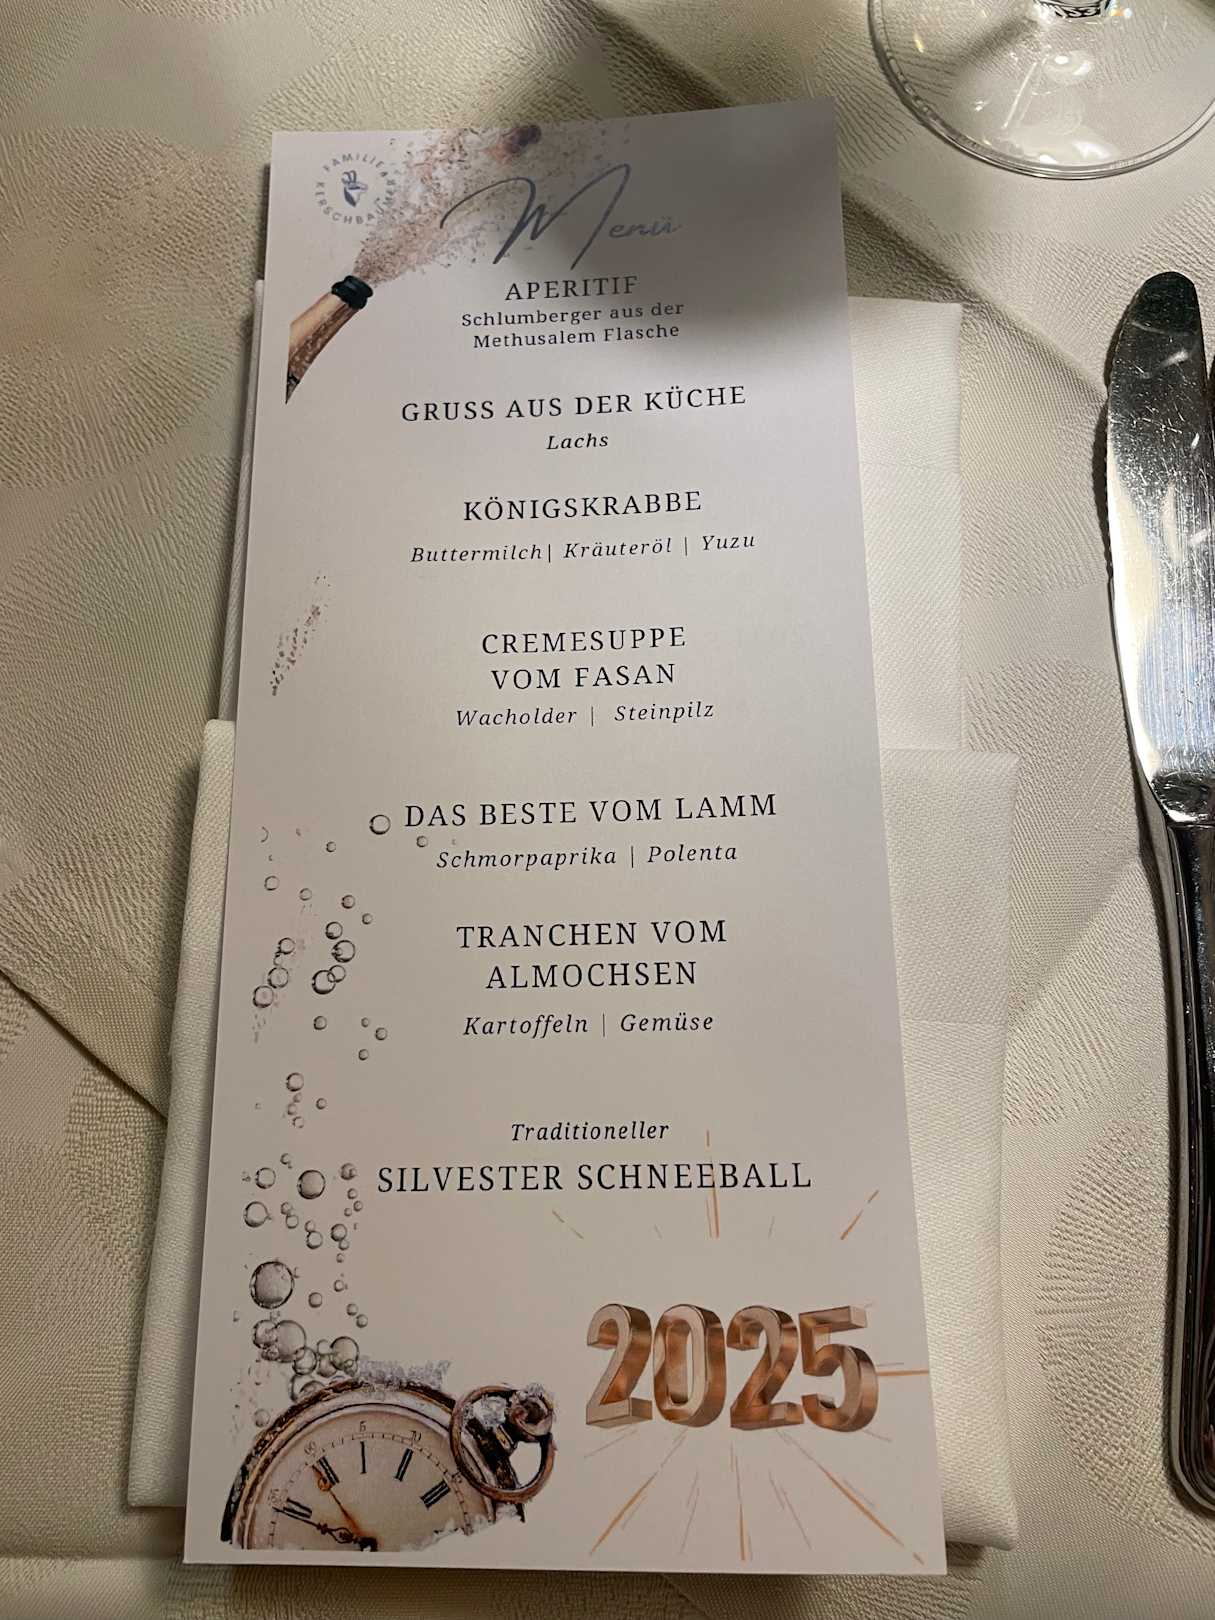 FAMILIE
KERSCHBAUMER
Menü
APERITIF
Schlumberger aus der
Methusalem Flasche
GRUSS AUS DER KÜCHE
Lachs
KÖNIGSKRABBE
Buttermilch| Kräuteröl | Yuzu
CREMESUPPE
VOM FASAN
Wacholder | Steinpilz
DAS BESTE VOM LAMM
Schmorpaprika | Polenta
TRANCHEN VOM
ALMOCHSEN
Kartoffeln | Gemüse
Traditioneller
SILVESTER SCHNEEBALL
2025